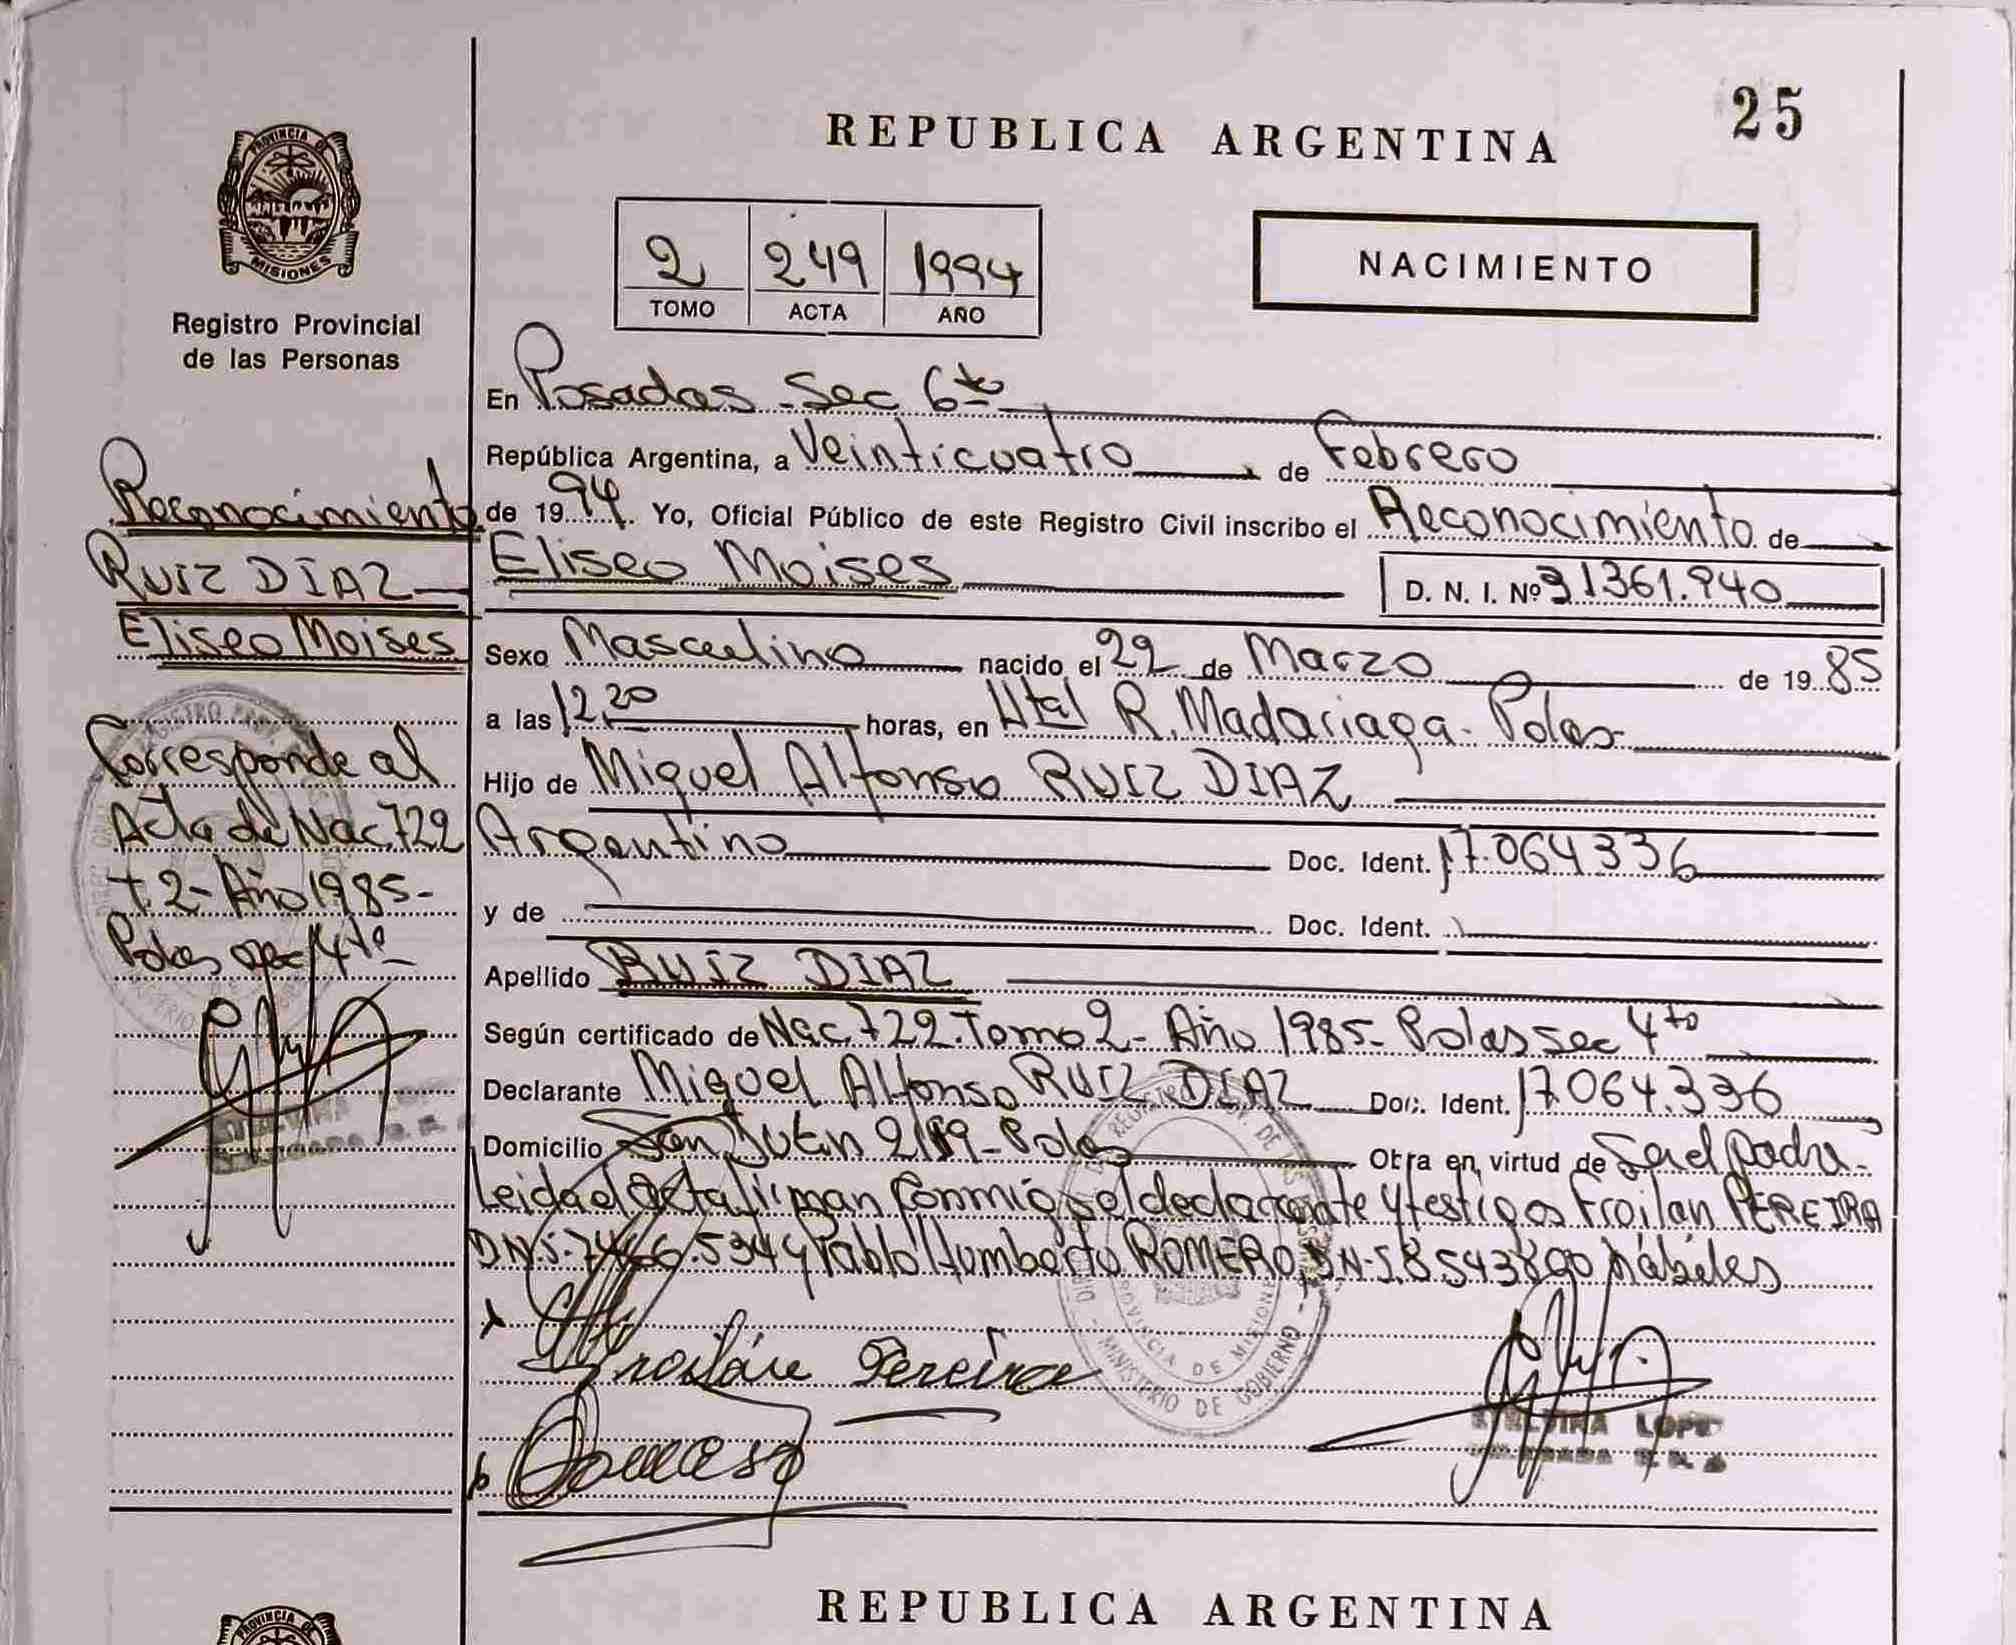 25
REPUBLICA ARGENTINA
PROVINCIA DE
MISIONES
Registro Provincial
de las Personas
2 249 1994
TOMO ACTA AÑO
NACIMIENTO
En Posadas - Sec 6ta
República Argentina, a Veinticuatro de Febrero
de 1994. Yo, Oficial Público de este Registro Civil inscribo el Reconocimiento de
Eliseo Moises D. N. I. Nº 31361.940
Sexo Masculino nacido el 22 de Marzo de 1985
a las 12,20 horas, en Htal R. Madariaga - Pdas
Hijo de Miguel Alfonso RUIZ DIAZ
Argentino Doc. Ident. 17.064336
y de Doc. Ident.
Apellido RUIZ DIAZ
Según certificado de Nac. 722. Tomo 2 - Año 1985 - Pdas sec 4ta
Declarante Miguel Alfonso RUIZ DIAZ Doc. Ident. 17064.336
Domicilio San Juan 2189 - Pdas Otra en virtud de Ser el padre -
Leida el acta firman conmigo el declarante y testigos Froilan PEREIRA
y Pablo Humberto ROMERO, hábiles
Froilán Pereira
MINISTERIO DE GOBIERNO
PROVINCIA DE MISIONES
Reconocimiento
RUIZ DIAZ
Eliseo Moises
Corresponde al
Acta de Nac. 722
t. 2 - Año 1985 -
Pdas sec 4ta
REPUBLICA ARGENTINA
PROVINCIA DE